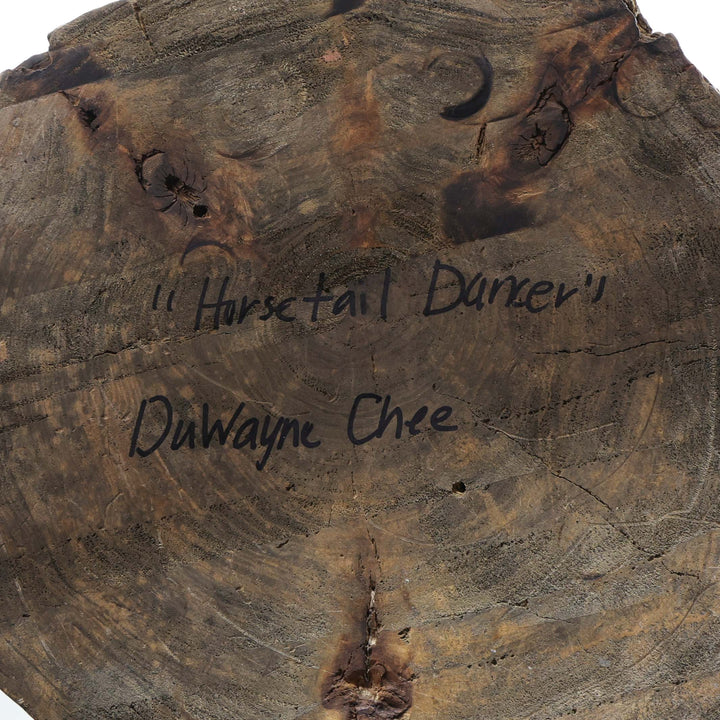 "Horsetail Dancer"
DuWayne Chee